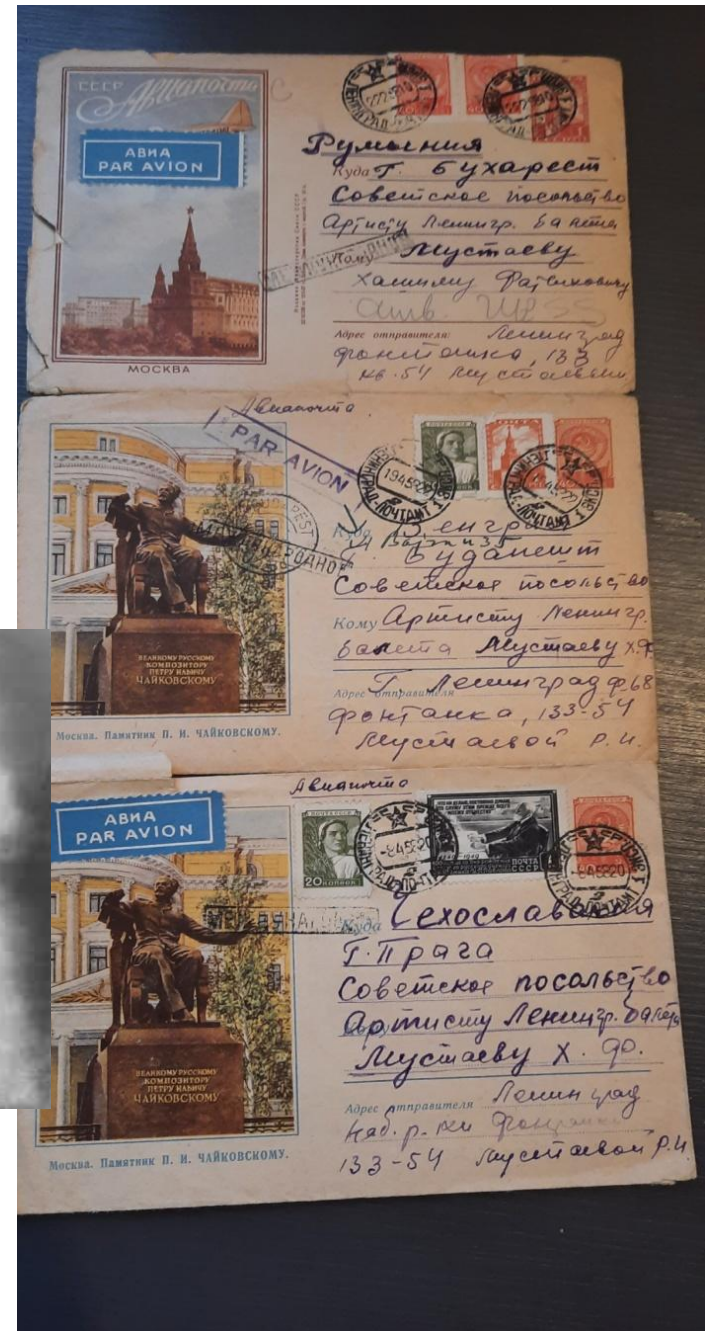 СССР
Авиапочта
АВИА
PAR AVION
МОСКВА
Румыния
Куда г. Бухарест
Советское посольство
Артисту Ленингр. балета
Мустаеву
Адрес отправителя: Ленинград
Фонтанка, 133
кв. 54 Мустаевой
Авиапочта
PAR AVION
ПОЧТАМТ
Куда Венгрия
г. Будапешт
Советское посольство
Кому Артисту Ленингр.
балета Мустаеву Х.Ф.
Адрес отправителя г. Ленинград ф-68
Фонтанка, 133-54
Мустаевой Р.И.
ВЕЛИКОМУ РУССКОМУ
КОМПОЗИТОРУ
ПЕТРУ ИЛЬИЧУ
ЧАЙКОВСКОМУ
Москва. Памятник П. И. ЧАЙКОВСКОМУ.
Авиапочта
АВИА
PAR AVION
20 КОПЕЕК
ПОЧТА
СССР
Куда Чехославакия
г. Прага
Советское посольство
Артисту Ленингр. балета
Мустаеву Х. Ф.
Адрес отправителя Ленинград
Наб. р-ки Фонтанки
133-54 Мустаевой Р.И.
ВЕЛИКОМУ РУССКОМУ
КОМПОЗИТОРУ
ПЕТРУ ИЛЬИЧУ
ЧАЙКОВСКОМУ
Москва. Памятник П. И. ЧАЙКОВСКОМУ.